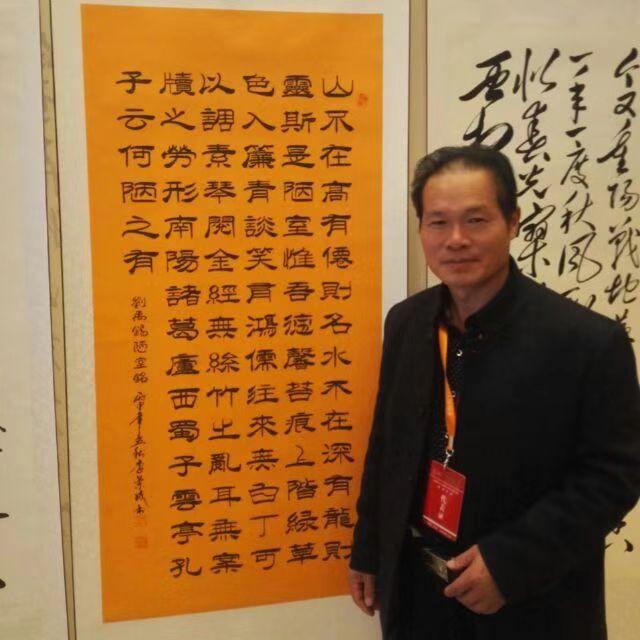 今又重陽戰地黃
一年一度秋風
似春光寥
山不在高有僊則名水不在深有龍則
靈斯是陋室惟吾德馨苔痕上階緑草
色入簾青談笑有鴻儒往來無白丁可
以調素琴閱金經無絲竹之亂耳無案
牘之勞形南陽諸葛廬西蜀子雲亭孔
子云何陋之有
劉禹錫陋室銘